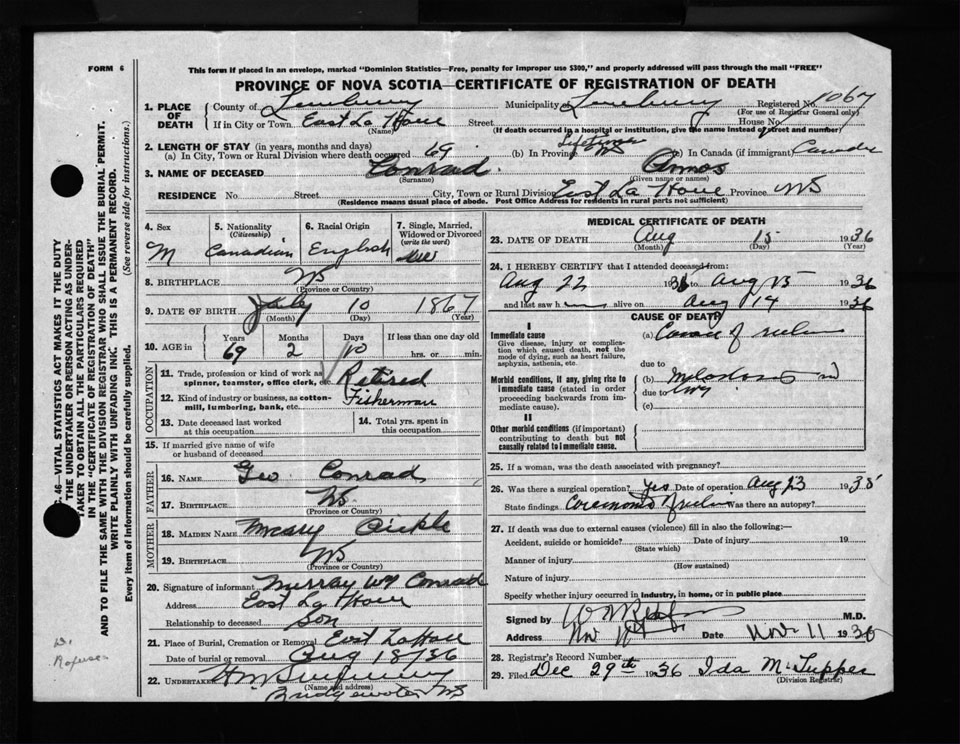 FORM 6
This form if placed in an envelope, marked "Dominion Statistics—Free, penalty for improper use $300," and properly addressed will pass through the mail "FREE"
PROVINCE OF NOVA SCOTIA—CERTIFICATE OF REGISTRATION OF DEATH
1. PLACE OF DEATH County of Lunenburg Municipality of Lunenburg Registered No. 1067
(For use of Registrar General only)
If in City or Town East La Have Street House No.
(Name) (If death occurred in a hospital or institution, give the name instead of street and number)
2. LENGTH OF STAY (in years, months and days)
(a) In City, Town or Rural Division where death occurred 69 (b) In Province NS (c) In Canada (if immigrant) Canada
3. NAME OF DECEASED Conrad Amos
(Surname) (Given name or names)
RESIDENCE No. Street City, Town or Rural Division East La Have Province NS
(Residence means usual place of abode. Post Office Address for residents in rural parts not sufficient)
4. Sex M
5. Nationality (Citizenship) Canadian
6. Racial Origin English
7. Single, Married, Widowed or Divorced (write the word)
8. BIRTHPLACE NS
(Province or Country)
9. DATE OF BIRTH July 10 1867
(Month) (Day) (Year)
10. AGE in Years 69 Months 2 Days 10 If less than one day old hrs. or min.
OCCUPATION
11. Trade, profession or kind of work as spinner, teamster, office clerk, etc. Retired
12. Kind of industry or business, as cotton-mill, lumbering, bank, etc. Fisherman
13. Date deceased last worked at this occupation
14. Total yrs. spent in this occupation
15. If married give name of wife or husband of deceased
FATHER
16. NAME Geo Conrad
17. BIRTHPLACE NS
(Province or Country)
MOTHER
18. MAIDEN NAME Mary
19. BIRTHPLACE NS
(Province or Country)
20. Signature of informant Murray Wm Conrad
Address East La Have
Relationship to deceased Son
21. Place of Burial, Cremation or Removal East La Have
Date of burial or removal Aug 18/36
22. UNDERTAKER
(Name and address)
Bridgewater NS
MEDICAL CERTIFICATE OF DEATH
23. DATE OF DEATH Aug 15 1936
(Month) (Day) (Year)
24. I HEREBY CERTIFY that I attended deceased from:
Aug 22 193 to Aug 15 1936
and last saw h alive on Aug 14 1936
CAUSE OF DEATH
I
Immediate cause
Give disease, injury or complication which caused death, not the mode of dying, such as heart failure, asphyxia, asthenia, etc.
(a)
due to
Morbid conditions, if any, giving rise to immediate cause (stated in order proceeding backwards from immediate cause).
(b)
due to
(c)
II
Other morbid conditions (if important) contributing to death but not causally related to immediate cause.
25. If a woman, was the death associated with pregnancy?
26. Was there a surgical operation? Yes Date of operation Aug 23 1935
State findings Was there an autopsy?
27. If death was due to external causes (violence) fill in also the following:—
Accident, suicide or homicide? Date of injury 19
(State which)
Manner of injury
(How sustained)
Nature of injury
Specify whether injury occurred in industry, in home, or in public place
Signed by M.D.
Address Date Nov 11 1936
28. Registrar's Record Number
29. Filed Dec 29th 1936 Ida M. Tupper
(Division Registrar)
C. 46—VITAL STATISTICS ACT MAKES IT THE DUTY
OF THE UNDERTAKER OR PERSON ACTING AS UNDERTAKER TO OBTAIN ALL THE PARTICULARS REQUIRED
IN THE "CERTIFICATE OF REGISTRATION OF DEATH"
AND TO FILE THE SAME WITH THE DIVISION REGISTRAR WHO SHALL ISSUE THE BURIAL PERMIT.
WRITE PLAINLY WITH UNFADING INK. THIS IS A PERMANENT RECORD.
Every item of information should be carefully supplied. (See reverse side for instructions.)